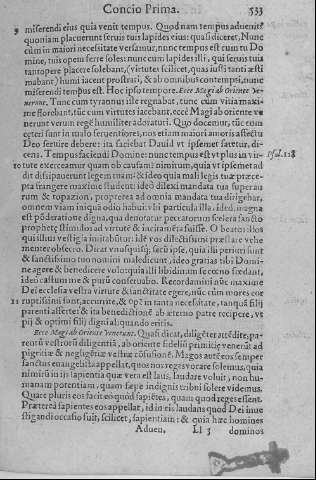 Concio Prima. 533
9 miserendi eius quia venit tempus. Quodnam tempus aduenit?
quoniam placuerunt seruis tuis lapides eius: quasi diceret, Nunc
cùm in maiori necessitate versamur, nunc tempus est cum tu Do
mine, tuis opem ferre soles: nunc cum lapides illi, qui seruis tuis
tantopere placere solebant, (virtutes scilicet, quas iusti tanti æsti
mabant) humi iacent prostrati, & ab omnibus contempti, nunc
miserendi tempus est. Hoc ipso tempore. Ecce Magi ab Oriente ve-
nerunt, Tunc cum tyrannus ille regnabat, tunc cum vitia maxi-
me florebant, tũc cum virtutes iacebant, ecce Magi ab oriente ve
nerunt verum regẽ humiliter adoraturi. Quo docemur, tũc cum
cęteri sunt in malo feruentiores, nos etiam maiori amoris affectu
Deo seruire debere: ita faciebat Dauid vt ipsemet fatetur, di-
cens. Tempus faciendi Domine: nunc tempus est vt plus in vir- Psal. 118
10 tute exerceamur quam ob causam? nimirum, quia vt ipsemet ad
dit dissipauerunt legem tuam: & ideo quia mali legis tuæ præce-
pta frangere maximè student: ideò dilexi mandata tua super au
rum & topazion, propterea ad omnia mandata tua dirigebar,
omnem viam iniquã odio habui: vbi particula illa, ideò, magnæ
est põderatione digna, qua denotatur peccatorum scelera sancto
prophetę stimulos ad virtutẽ & incitamẽta fuisse. O beatos illos
qui illius vestigia imitabũtur: idẽ vos dilectissimi præstare vehe
menter obsecro. Dicat vnusquisq; secũ ipse, quia illi perierũt sunt
& sanctissimo tuo nomini maledicunt, ideo gratias tibi Domi-
ne agere & benedicere volo: quia illi libidinum se cœno fœdant,
ideò castum me & purũ conseruabo. Recordamini nũc maxime
Dei ecclesia vestra virtute & sanctitate egere, nũc cùm mores cor
11 ruptissimi sunt, accurrite, & opẽ in tanta necessitate, tanquã filij
parenti afferte: & ita benedictionẽ ab æterno patre recipere, vt
pij & optimi filij digni aliquando eritis.
Ecce Magi ab Oriente venerunt. Quasi dicat, diligẽter attẽdite, pa-
rentũ vestrorũ diligentiã, ab oriente fidelĩũ primitię venerũt ad
pigritiæ & negligẽtiæ vestræ cõfusionẽ. Magos autẽ eos semper
sanctus euangelista appellat, quos nos reges vorare solemus, quia
nimirũ in ijs sapientiã quæ vera est laus, laudare voluit, non hu-
manam potentiam, quam sæpè indignis tribui solere videmus.
Quare pluris eos facit eò quòd sapiẽtes, quam quod reges essent.
Prætereà sapientes eos appellat, id in eis laudans quod Dei inue
stigandi occasio fuit, scilicet, sapientiam: & quia hæc homines
Aduen. Ll 3 dominos